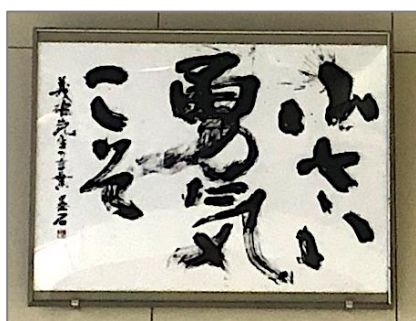 小さい
勇気
こそ
先生の言葉